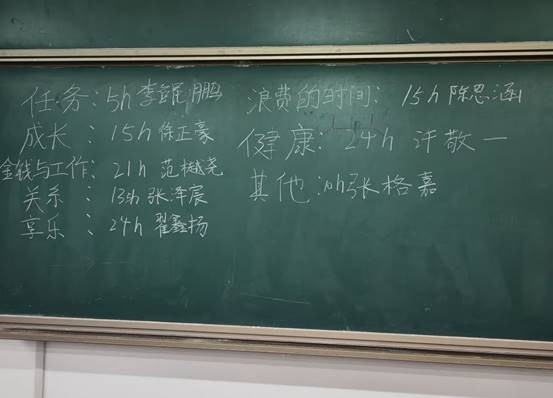 任务：5h 李鲲鹏
成长：15h 徐正豪
金钱与工作：21h 范樾尧
关系：13h 张泽宸
享乐：24h 翟鑫扬
浪费的时间：15h 陈思涵
健康：24h 许敬一
其他：10h 张格嘉